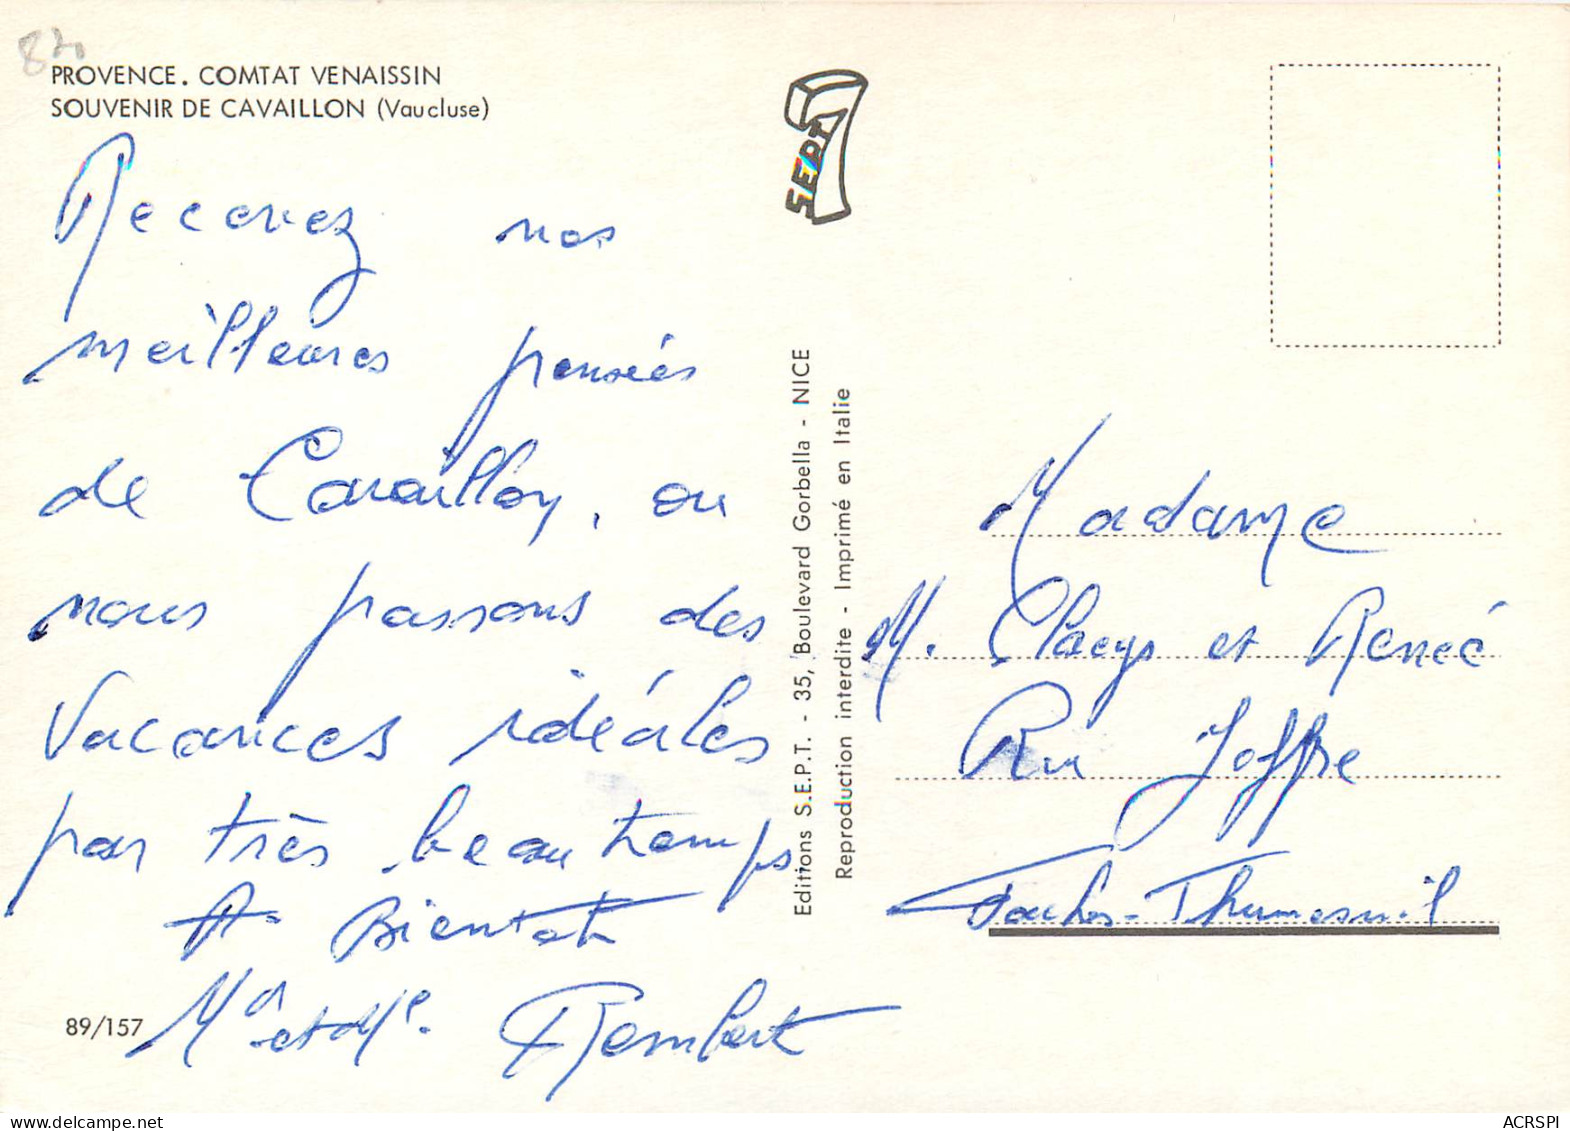 PROVENCE. COMTAT VENAISSIN
SOUVENIR DE CAVAILLON (Vaucluse)
Recevez nos
meilleures pensées
de Cavaillon, ou
nous passons des
Vacances idéales
par très beau temps
A Bientôt
Mr et Me Rembert
89/157
SEPT
Editions S.E.P.T. - 35, Boulevard Gorbella - NICE
Reproduction interdite - Imprimé en Italie
Madame
M. Claeys et Renée
Rue Joffre
Faches-Thumesnil
ACRSPI